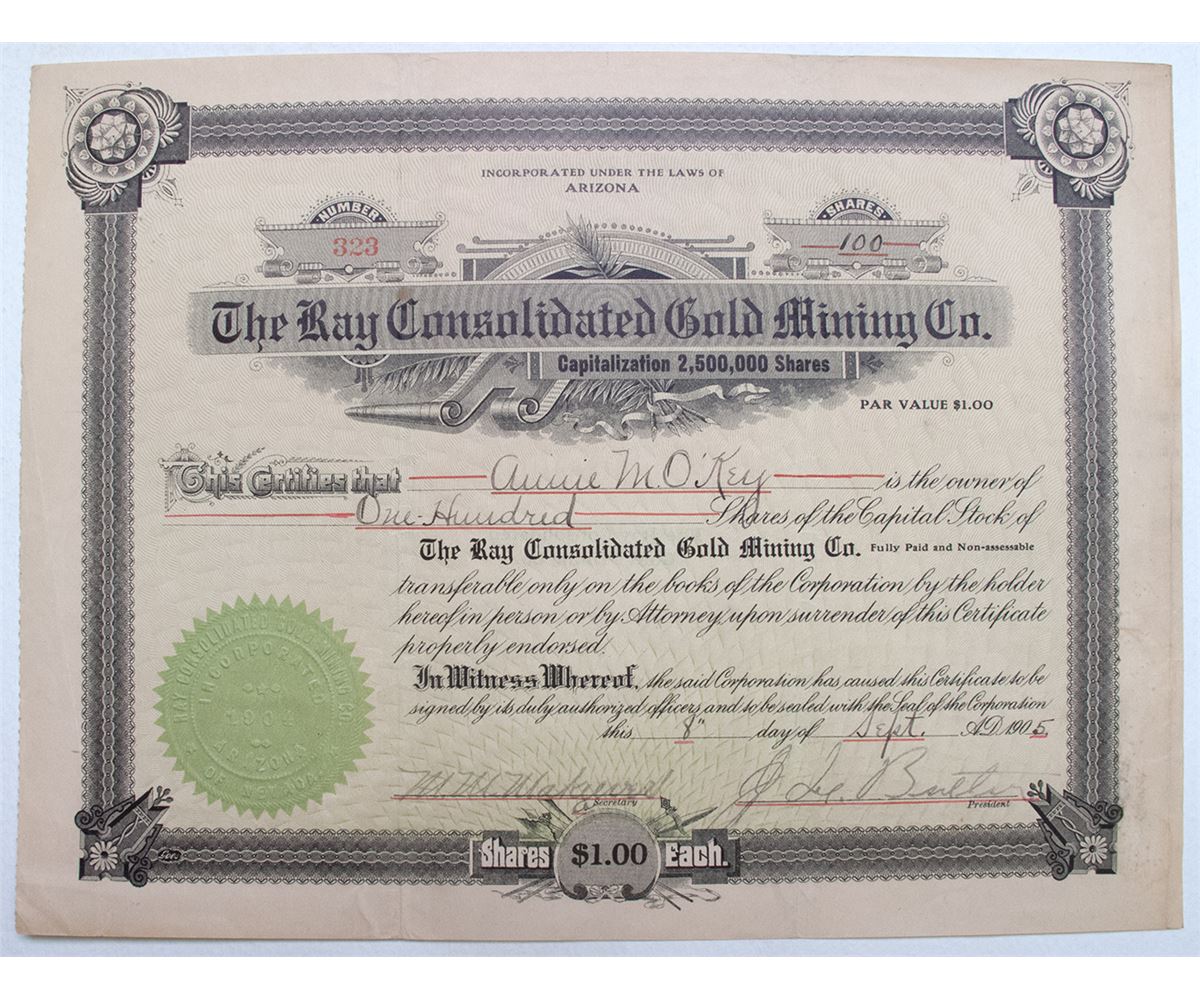 INCORPORATED UNDER THE LAWS OF
ARIZONA
NUMBER
323
SHARES
100
The Ray Consolidated Gold Mining Co.
Capitalization 2,500,000 Shares
PAR VALUE $1.00
This Certifies that Annie M. O'Key is the owner of
One Hundred Shares of the Capital Stock of
The Ray Consolidated Gold Mining Co. Fully Paid and Non-assessable
transferable only on the books of the Corporation by the holder
hereof in person or by Attorney upon surrender of this Certificate
properly endorsed.
In Witness Whereof, the said Corporation has caused this Certificate to be
signed by its duly authorized officers and to be sealed with the Seal of the Corporation
this 8" day of Sept. A.D. 1905.
RAY CONSOLIDATED GOLD MINING CO.
INCORPORATED
ARIZONA
OF NEVADA
Secretary
President
Shares $1.00 Each.